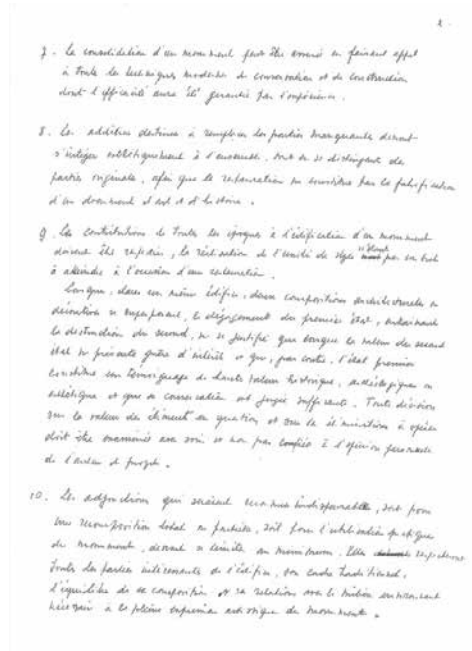 2.
7. La consolidation d'un monument peut être assurée en faisant appel
à toutes les techniques modernes de conservation et de construction
dont l'efficacité aura été garantie par l'expérience.
8. Les additions destinées à remplacer les parties manquantes doivent
s'intégrer esthétiquement à l'ensemble, tout en se distinguant des
parties originales, afin que la restauration ne constitue pas la falsification
d'un document d'art et d'histoire.
9. Les contributions de toutes les époques à l'édification d'un monument
doivent être respectées, la restitution de l'unité de style n'étant pas un but
à atteindre à l'occasion d'une restauration.
Lorsque, dans un même édifice, deux compositions architecturales ou
décoratives se superposent, le dégagement du premier état, entraînant
la destruction du second, ne se justifie que lorsque la valeur du second
état ne présente guère d'intérêt et que, par contre, l'état premier
constitue un témoignage de haute valeur historique, archéologique ou
esthétique et que sa conservation est jugée suffisante. Toute décision
sur la valeur des éléments en question et sur les éliminations à opérer
doit être examinée avec soin et non pas confiée à l'opinion personnelle
de l'auteur du projet.
10. Les adjonctions qui seraient reconnues indispensables, soit pour
une recomposition totale ou partielle, soit pour l'utilisation pratique
du monument, devront se limiter au minimum. Elles respecteront
toutes les parties intéressantes de l'édifice, son cadre traditionnel,
l'équilibre de sa composition et ses relations avec le milieu environnant
nécessaire à la pleine expression artistique du monument.